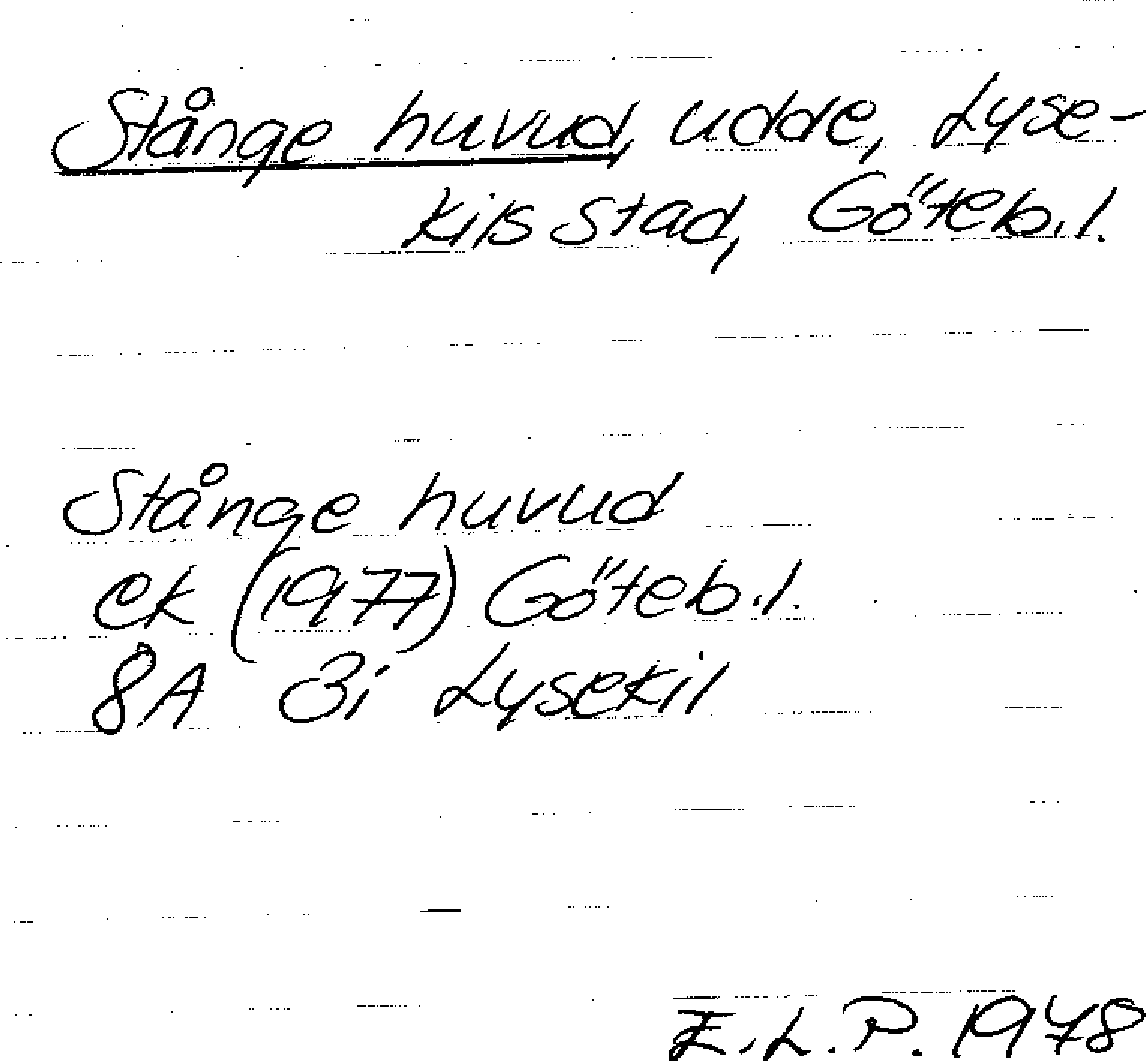 Stånge huvud, udde, Lyse-
kils stad, Göteb.l.
Stånge huvud
ek (1977) Göteb.l.
8A 3i Lysekil
E.L.P. 1978